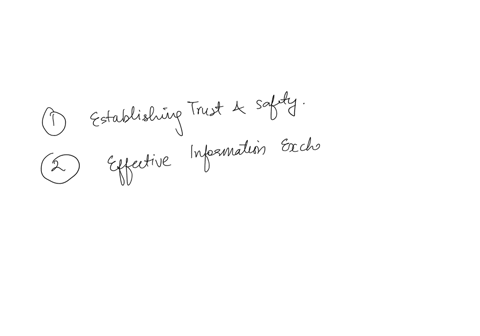 ① Establishing Trust & Safety.
② Effective Information Exch